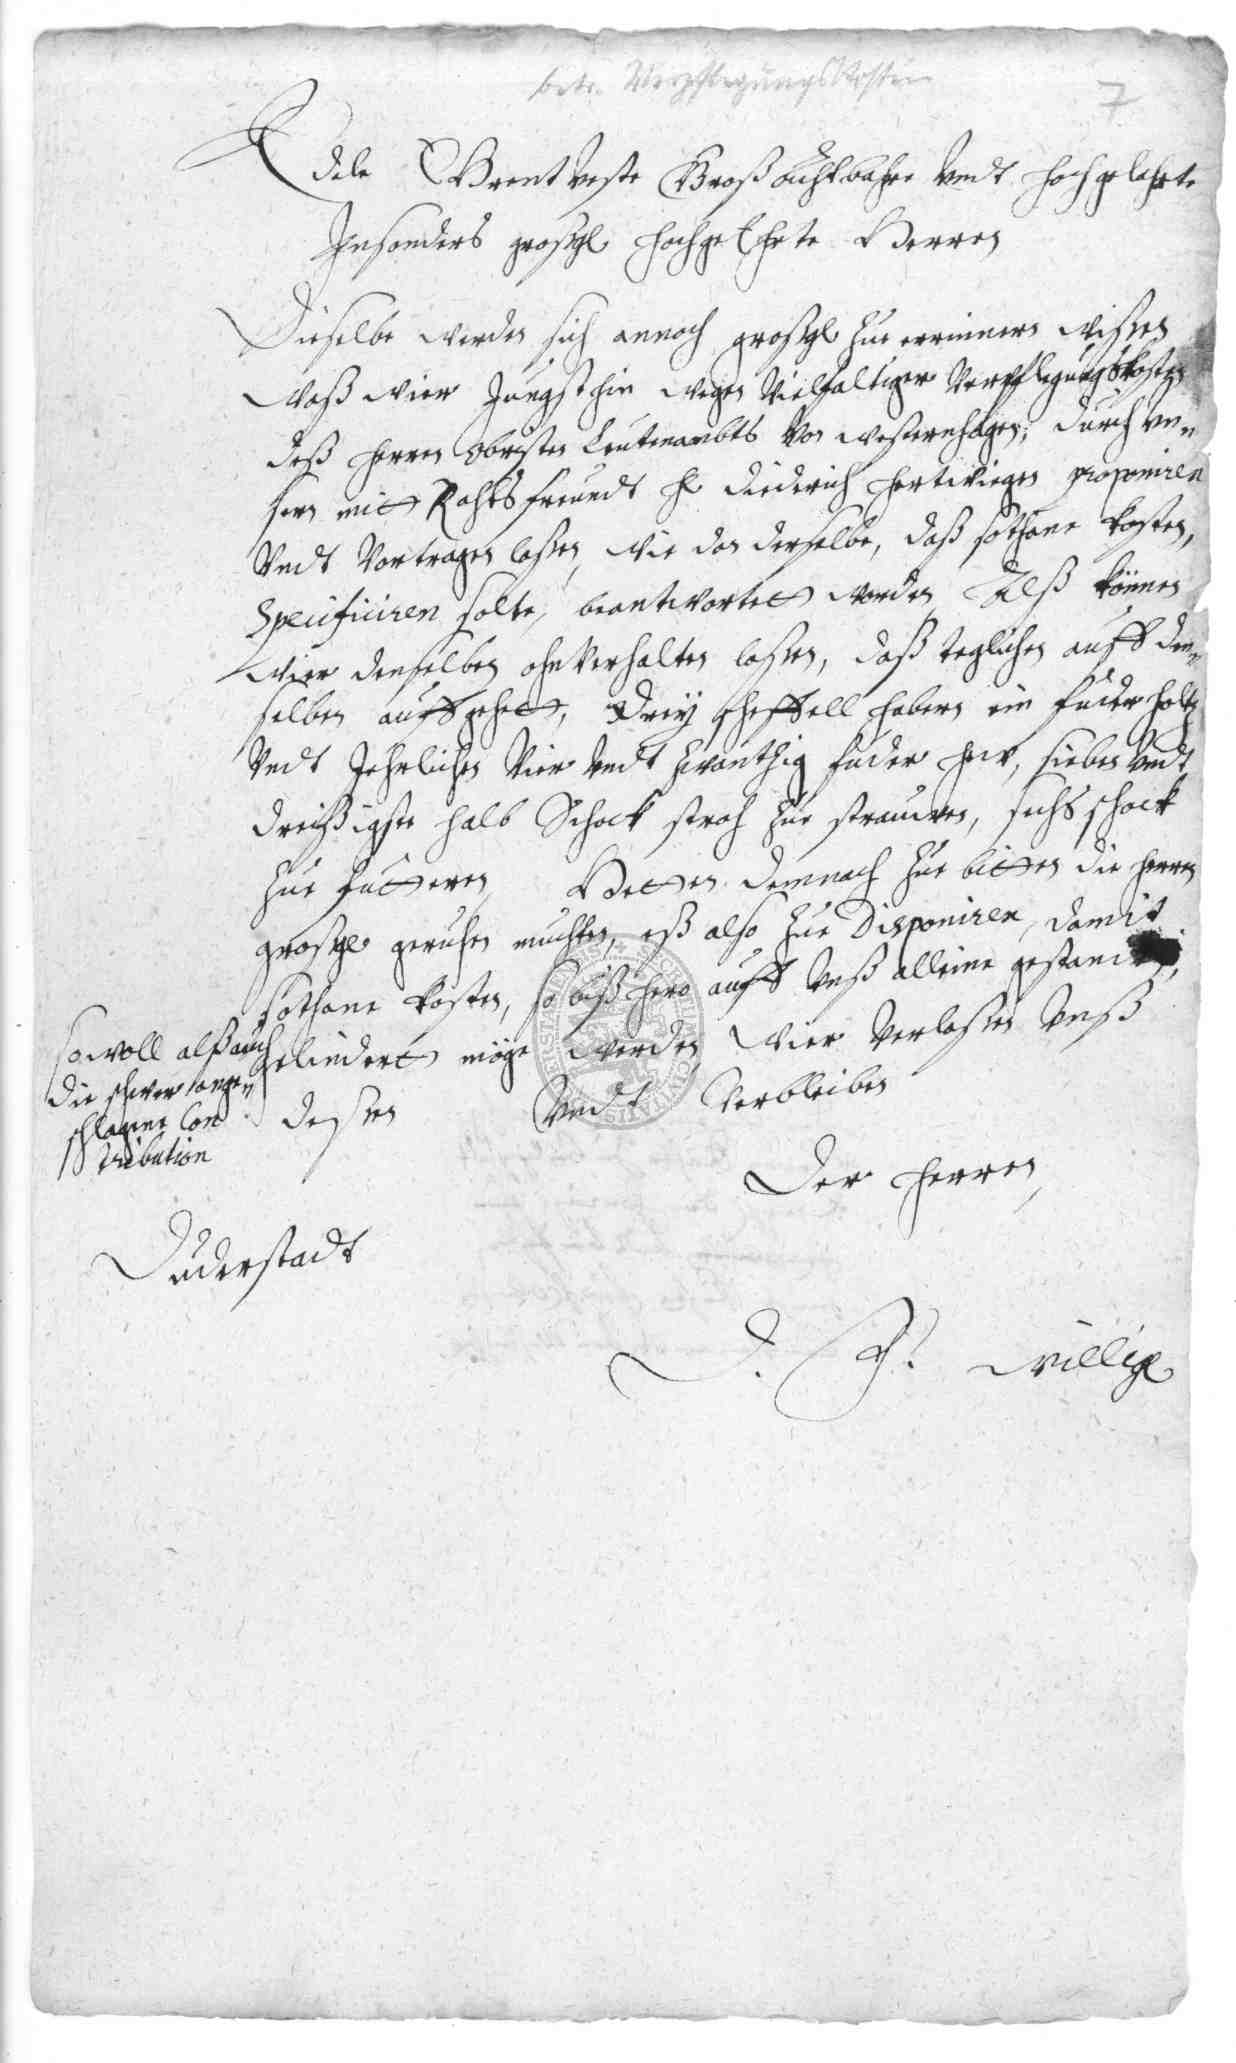 betr. Verpflegungskosten
7
Edele Ehrentveste Großachtbahre Undt hochgelahrte
Insonders großgl hochgeEhrte Herren
Dieselbe werden sich annoch großgl zue errinnern wissen
waß wier Jungsthin wegen Vielfaltiger Verpflegungskosten
deß Herren Obristen Leutenambts Von Westernhagen, durch un„
sern mit Rahtsfreundt H Diederich Hertwiegen proponiren
Undt Vortragen lassen, wie dan derselbe, daß sothane kosten,
Specificiren solte, beantwortet worden, Alß können
wier denselben ohnverhalten lassen, daß teglichen auff den„
selben auffgehet, Drey scheffell habern ein fuder holtz
Undt Jehrlichen Vier Undt zwanthzig fuder hew, sieben Undt
dreißigste halb Schock stroh zue strauwen, sechs schock
zue futteren, Betten demnach zue bitten die herren
großgl geruhen muchten, eß also zue Disponiren, damit
sothane kosten, so bißhero auff Unß alleine gestanden,
sowoll alß auch
die schwer ange„
schlagene Con
tribution
gelindert möge werden, Wier Verlassen Unß
dessen Undt Verbleiben
Der Herren
Duderstadt
D. W. willige